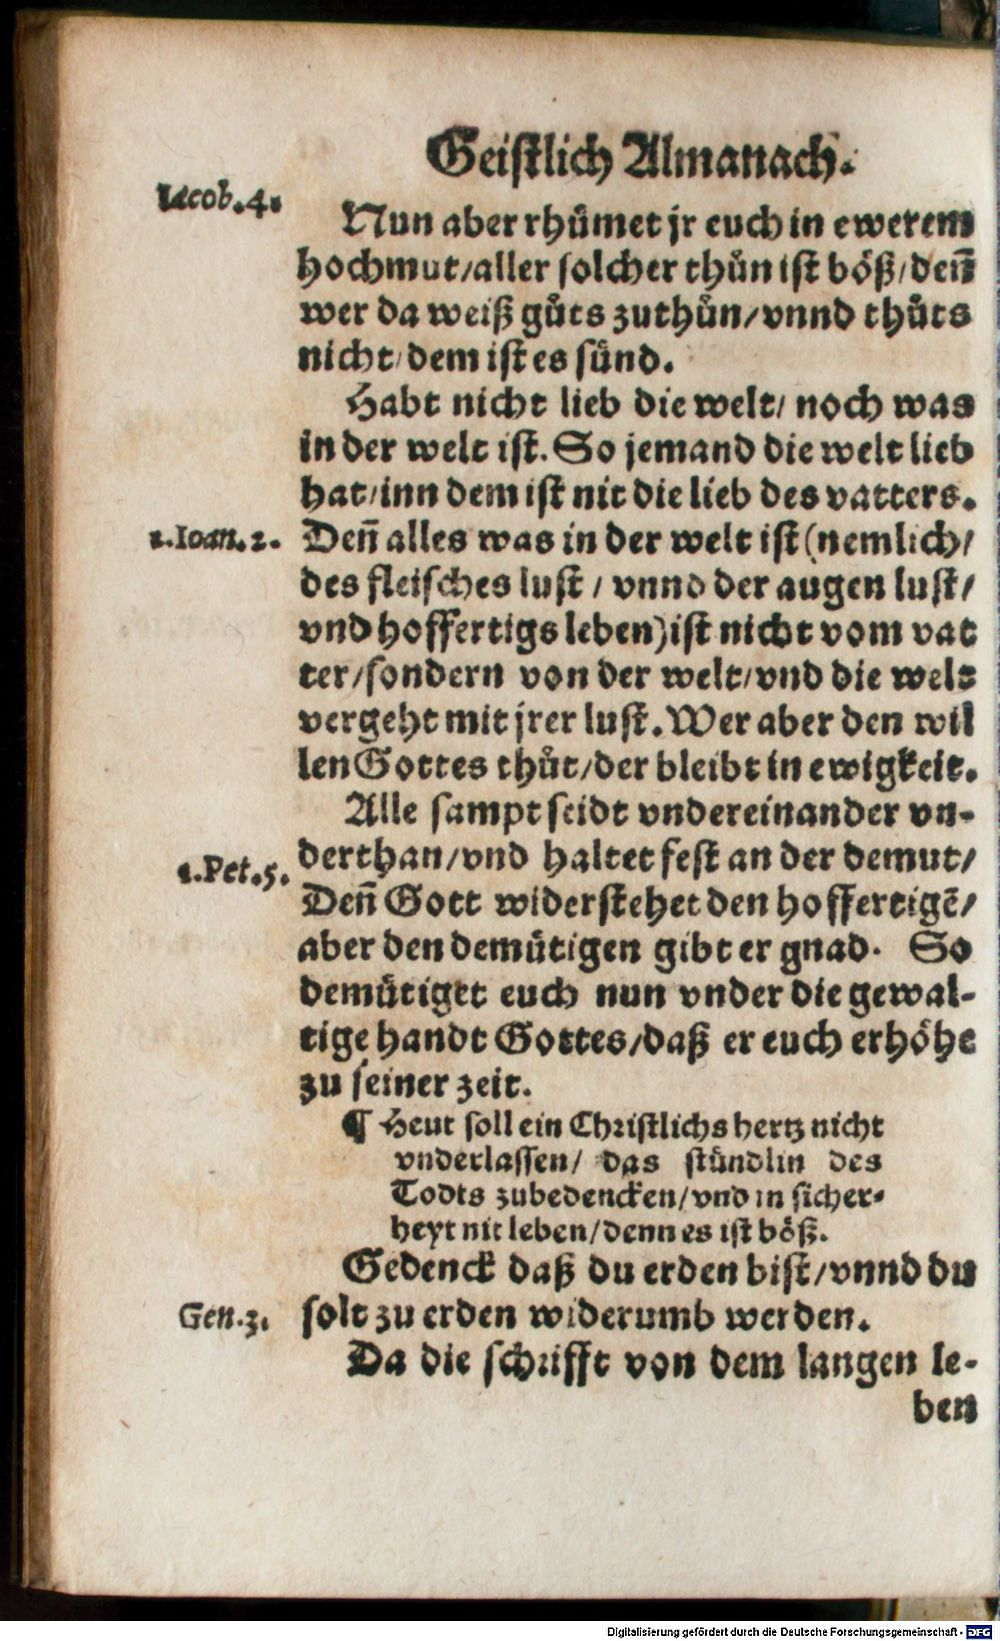 Geistlich Almanach.
Iacob.4.
Nun aber rhümet jr euch in ewerem
hochmut/aller solcher thůn ist böß/deñ
wer da weiß gůts zuthůn/vnnd thůts
nicht/dem ist es sünd.
Habt nicht lieb die welt/ noch was
in der welt ist. So jemand die welt lieb
hat/inn dem ist nit die lieb des vatters.
1.Ioan.2.
Deñ alles was in der welt ist (nemlich/
des fleisches lust / vnnd der augen lust/
vnd hoffertigs leben) ist nicht vom vat
ter/sondern von der welt/vnd die welt
vergeht mit jrer lust. Wer aber den wil
len Gottes thůt/der bleibt in ewigkeit.
Alle sampt seidt vndereinander vn-
1.Pet.5.
derthan/vnd haltet fest an der demut/
Deñ Gott widerstehet den hoffertigē/
aber den demütigen gibt er gnad. So
demütiget euch nun vnder die gewal-
tige handt Gottes/daß er euch erhöhe
zu seiner zeit.
¶ Heut soll ein Christlichs hertz nicht
vnderlassen/ das stündlin des
Todts zubedencken/vnd in sicher-
heyt nit leben/denn es ist böß.
Gedenck daß du erden bist/vnnd du
Gen.3.
solt zu erden widerumb werden.
Da die schrifft von dem langen le-
ben
Digitalisierung gefördert durch die Deutsche Forschungsgemeinschaft - DFG